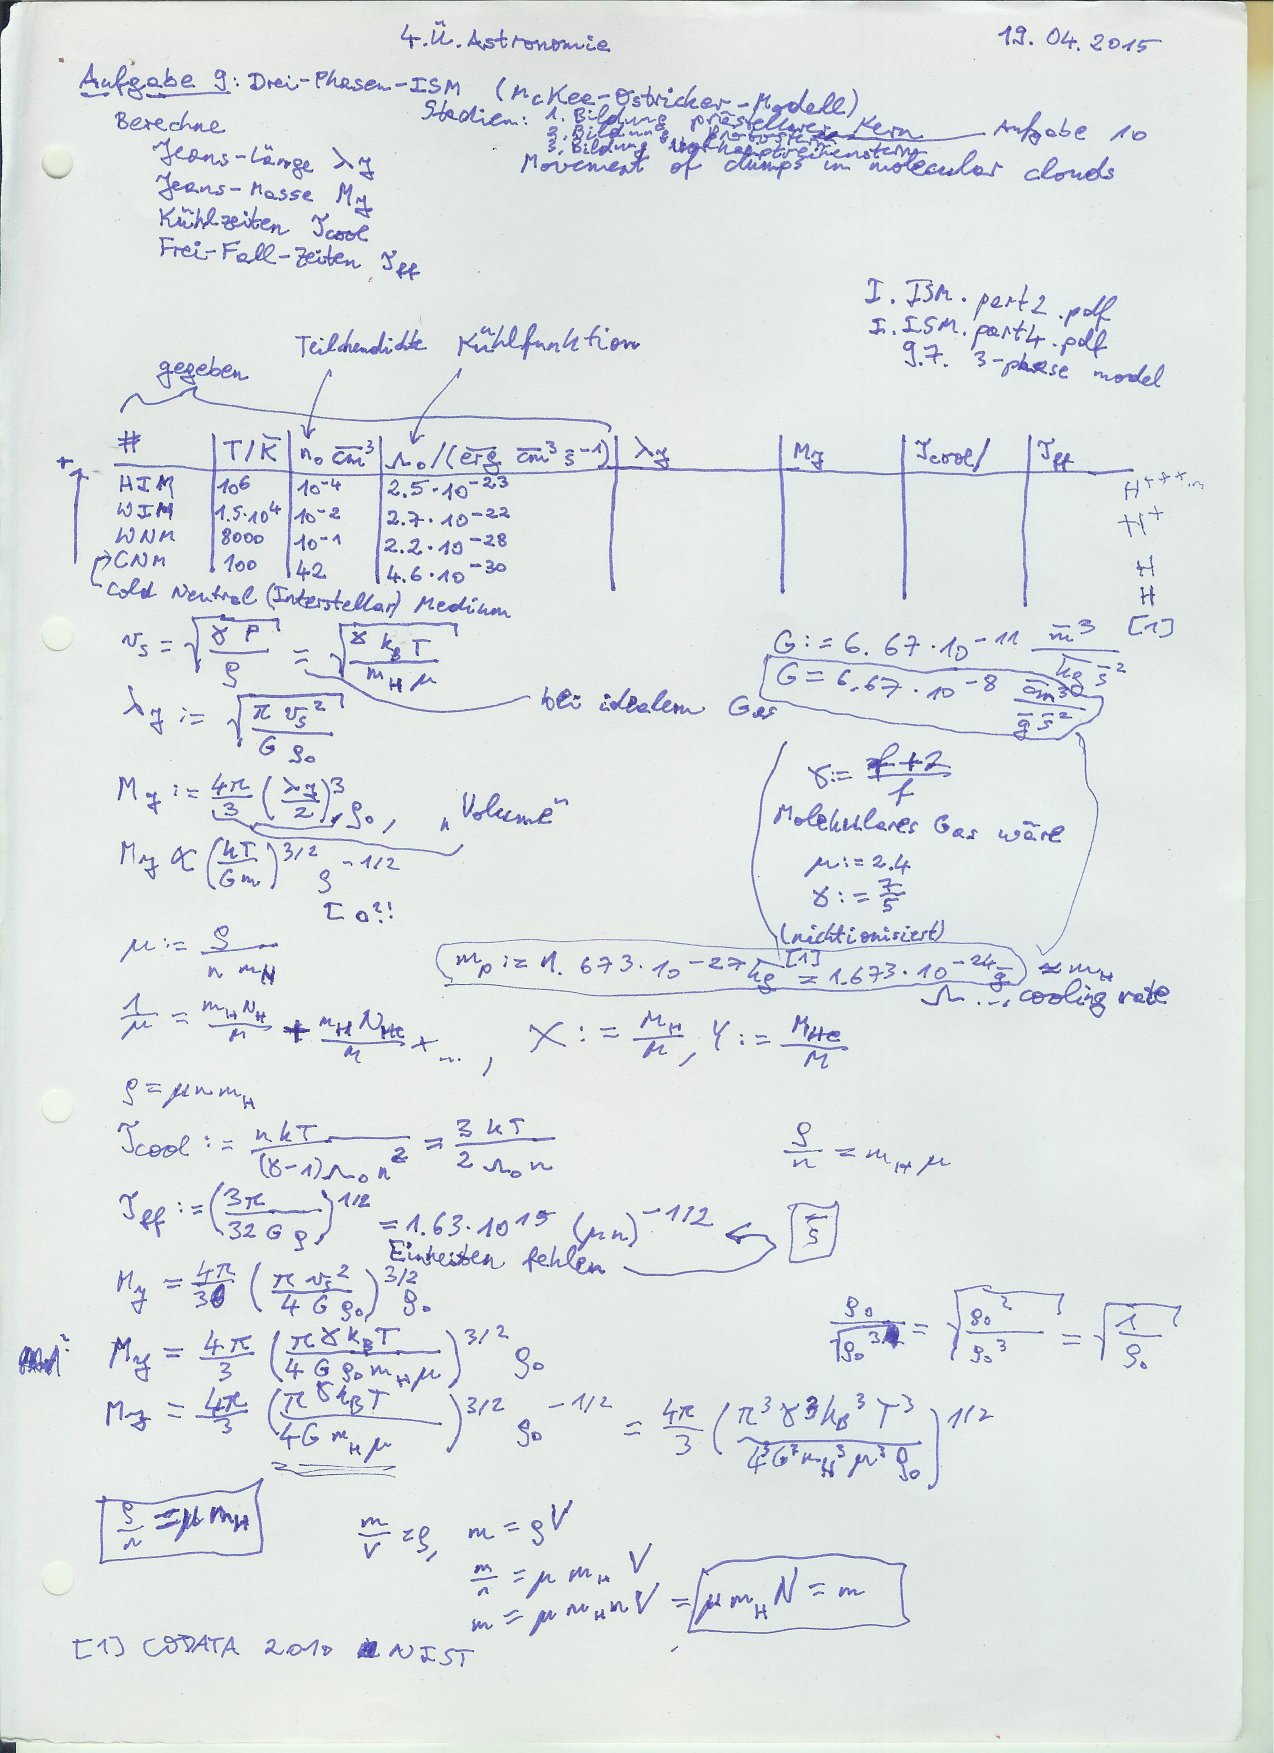 4.Ü. Astronomie
19.04.2015
Aufgabe 9: Drei-Phasen-ISM (McKee-Ostricker-Modell)
Stadien: 1. Bildung prästellarer Kern
2. Bildung Protostern
3. Bildung Vorhauptreihenstern
Aufgabe 10
Movement of clumps in molecular clouds
Berechne
Jeans-Länge λ_J
Jeans-Masse M_J
Kühlzeiten τ_cool
Frei-Fall-Zeiten τ_ff
I. ISM. part2.pdf
I. ISM. part4.pdf
9.7. 3-phase model
gegeben
Teilchendichte
Kühlfunktion
# | T/K̄ | n₀ c̄m̄³ | Λ₀/(ērḡ c̄m̄³ s̄⁻¹) | λ_J | M_J | τ_cool/ | τ_ff
HIM | 10⁶ | 10⁻⁴ | 2.5·10⁻²³ H⁺⁺⁺...
WIM | 1.5·10⁴ | 10⁻² | 2.7·10⁻²² H⁺
WNM | 8000 | 10⁻¹ | 2.2·10⁻²⁸ H
CNM | 100 | 42 | 4.6·10⁻³⁰ H
Cold Neutral (Interstellar) Medium
v_s = √(γ P / ρ) = √(γ k_B T / (m_H μ))
bei idealem Gas
G := 6.67·10⁻¹¹ m̄³/(k̄ḡ s̄²) [1]
G = 6.67·10⁻⁸ c̄m̄³/(ḡ s̄²)
λ_J := √(π v_s² / (G ρ₀))
M_J := 4π/3 (λ_J/2)³ ρ₀, "Volume"
M_J ∝ (kT/Gm)^3/2 ρ^-1/2
[0?!
γ := (f+2)/f
Molekulares Gas wäre
μ := 2.4
γ := 7/5
(nichtionisiert)
μ := ρ/(n m_H)
m_p := 1.673·10⁻²⁷ kg [1] = 1.673·10⁻²⁴ ḡ ≈ m_H
Λ ... cooling rate
1/μ = m_H N_H/M + m_H N_He/M + ..., X := M_H/M, Y := M_He/M
ρ = μ n m_H
τ_cool := n k T/((γ-1) Λ₀ n²) = 3 k T/(2 Λ₀ n)
ρ/n = m_H μ
τ_ff := (3π/(32 G ρ))^1/2 = 1.63·10¹⁵ (μn)^-1/2
s̄
Einheiten fehlen
M_J = 4π/3 (π v_s²/(4 G ρ₀))^3/2 ρ₀
ρ₀/√(ρ₀³) = √(ρ₀²/ρ₀³) = √(1/ρ₀)
M_J = 4π/3 (π γ k_B T/(4 G ρ₀ m_H μ))^3/2 ρ₀
M_J = 4π/3 (π γ k_B T/(4 G m_H μ))^3/2 ρ₀^-1/2 = 4π/3 (π³ γ³ k_B³ T³/(4³ G³ m_H³ μ³ ρ₀))^1/2
ρ/n = μ m_H
m/V = ρ, m = ρV
m/n = μ m_H V
m = μ m_H n V = μ m_H N = m
[1] CODATA 2010 NIST